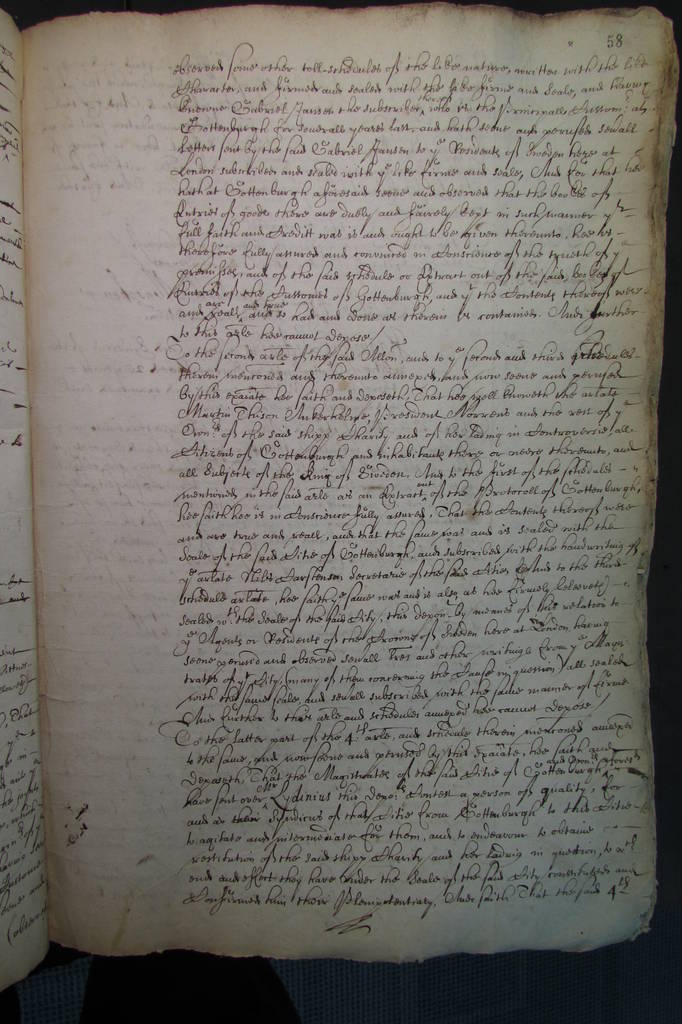 58
observed some other toll-schedules of the like nature, written with the like
Character, and firmed and sealed with the like firme and seale, and having
knowne Gabriel Jansen the subscriber, who is the Principall Custom: at
Gottenburgh for severall yeares last, and hath seene and perused severall
letters sent by the said Gabriel Jansen to ye Resident of Sweden here at
London subscribed and sealed with ye like firme and seale, And for that hee
hath at Gottenburgh aforesaid seene and observed that the bookes of
Entries of goods there are duely and fairely kept in such manner yt
full faith and Creditt was is and ought to be given thereunto, hee is
therefore fully assured and convinced in Conscience of the trueth of ye
premisses, and of the said schedule or Extract out of the said bookes of
Entries of the Customes of Gottenburgh, and yt the Contents thereof were
and are true and reall, and so had and done as therein is contained. And further
to this arle hee cannot depose./
To the second arle of the said Allon, and to ye second and third schedules
therein menconed and thereunto annexed, and now seene and perused
by this exaiate hee saith and deposeth, That hee well knoweth the arlate
Martin Thison Ankerhelme, President Norrens and the rest of ye
Owners of the said shipp Charity and of her lading in Controversie all
Citizens of Gottenburgh and inhabitants there or neere thereunto, and
all Subjects of the King of Sweden. And to the first of the schedules
mentioned in the said arle as an Extract out of the Protocoll of Gottenburgh,
hee saith hee is in Conscience fully assured, That the Contents thereof were
and are true and reall, and that the same was and is sealed with the
seale of the said Citie of Gottenburgh, and subscribed with the handwriting of
ye arlate Nils Larsenson secretarie of the said Citie, And to the third
schedule arlate, hee saith ye same was and is also, as hee firmely beleeveth
sealed wth the seale of the said City, this depont by meanes of his relation to
ye Agents or Residents of the Crowne of Sweden here at London, having
seene perused and observed severall lres and other writings from ye Magis
trates of yt City (many of them concerning the Cause in question) all sealed
with the same seale, and severall subscribed with the same manner of firme
And further to this arle and schedules annexed hee cannot depose./
To the latter part of the 4th arle, and schedule therein menconed annexed
to the same, and now seene and perused by this exaiate, hee saith and
deposeth, That the Magistrates of the said Citie of Gottenburgh
have sent over Mr Lydinius this depots Contest a person of quality, for
and as their Syndicus of that Citie from Gottenburgh to this Citie
to agitate and intermediate for them, and to endeavour to obtaine
restitution of the said shipp Charity and her lading in question, to wch
end and effect they have under the seale of the said City constituted and
Confirmed him their Plenipotentiary, And saith That the said 4th